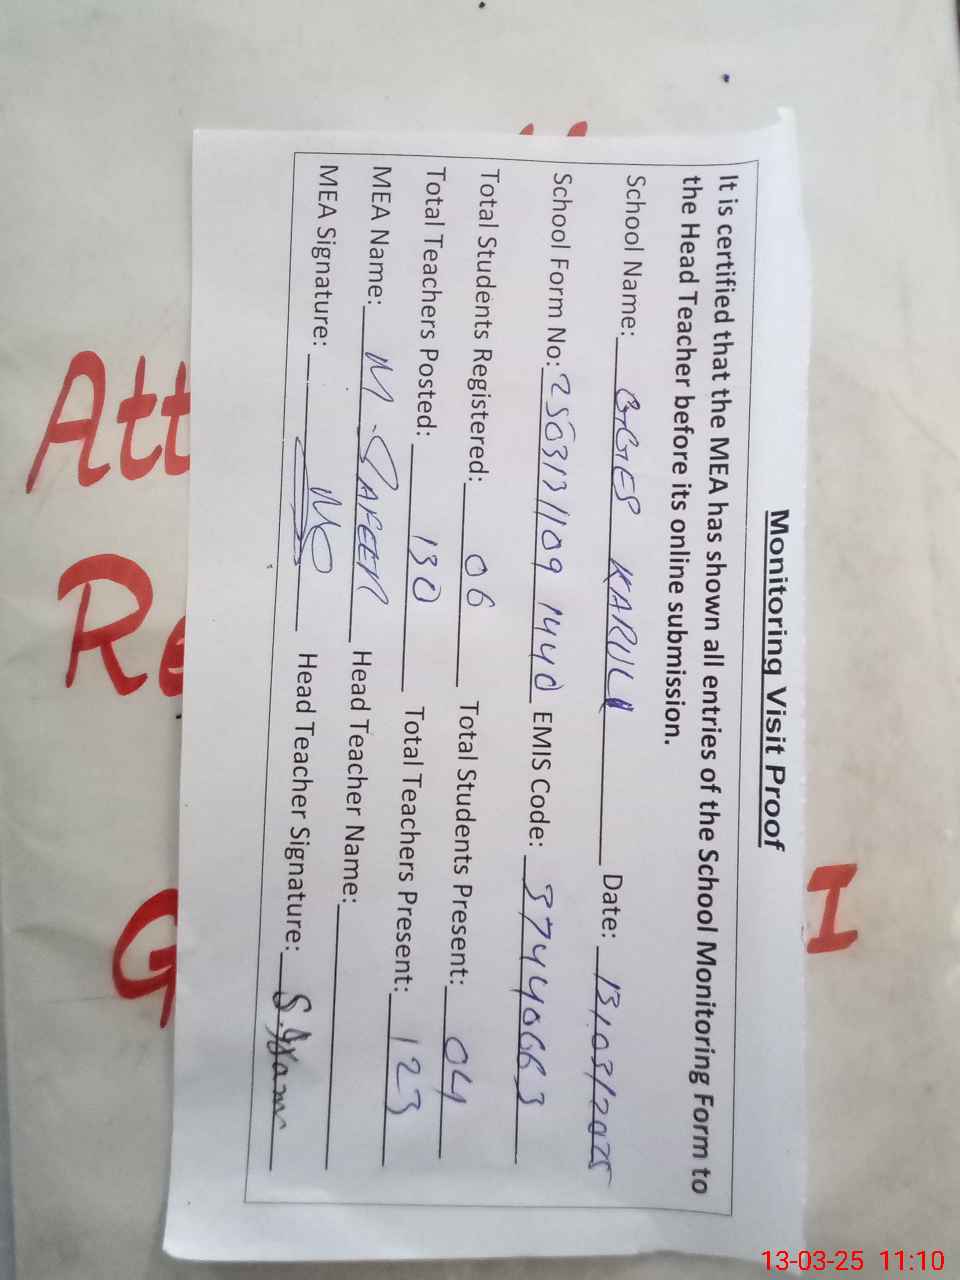 Monitoring Visit Proof
It is certified that the MEA has shown all entries of the School Monitoring Form to
the Head Teacher before its online submission.
School Name: GGES KARULI Date: 13/03/2025
School Form No: 2503131109 1440 EMIS Code: 37440663
Total Students Registered: 06 Total Students Present: 04
Total Teachers Posted: 130 Total Teachers Present: 123
MEA Name: M. SAFEER Head Teacher Name:
MEA Signature: Head Teacher Signature:
Att
R
G
H
13-03-25 11:10